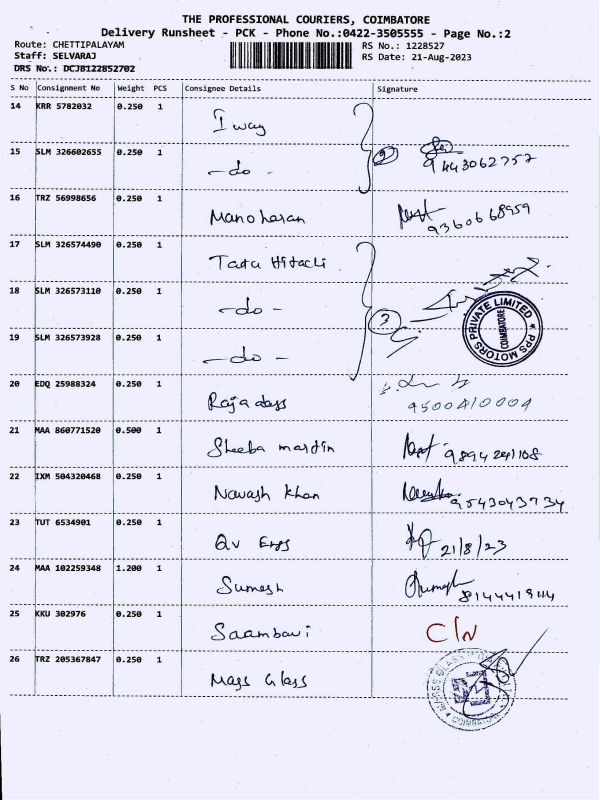 THE PROFESSIONAL COURIERS, COIMBATORE
Delivery Runsheet - PCK - Phone No.:0422-3505555 - Page No.:2
Route: CHETTIPALAYAM
RS No.: 1228527
Staff: SELVARAJ
RS Date: 21-Aug-2023
DRS No.: DCJB122852702
S No Consignment No Weight PCS Consignee Details Signature
14 KRR 5782032 0.250 1 I way
15 SLM 326602655 0.250 1 -do- 2 9443062757
16 TRZ 56998656 0.250 1 Manoharan 9360668959
17 SLM 326574490 0.250 1 Tata Hitachi
18 SLM 326573110 0.250 1 -do- 3
PPS MOTORS PRIVATE LIMITED COIMBATORE
19 SLM 326573928 0.250 1 -do-
20 EDQ 25988324 0.250 1 Raja 9500410004
21 MAA 860771520 0.500 1 Sheeba martin 9894241108
22 IXM 504320468 0.250 1 Navash Khan 9543043734
23 TUT 6534901 0.250 1 Qv Engs 21/8/23
24 MAA 102259348 1.200 1 Sumesh
25 KKU 302976 0.250 1 Saambavi C/N
26 TRZ 205367847 0.250 1 Mass Glass
COIMBATORE